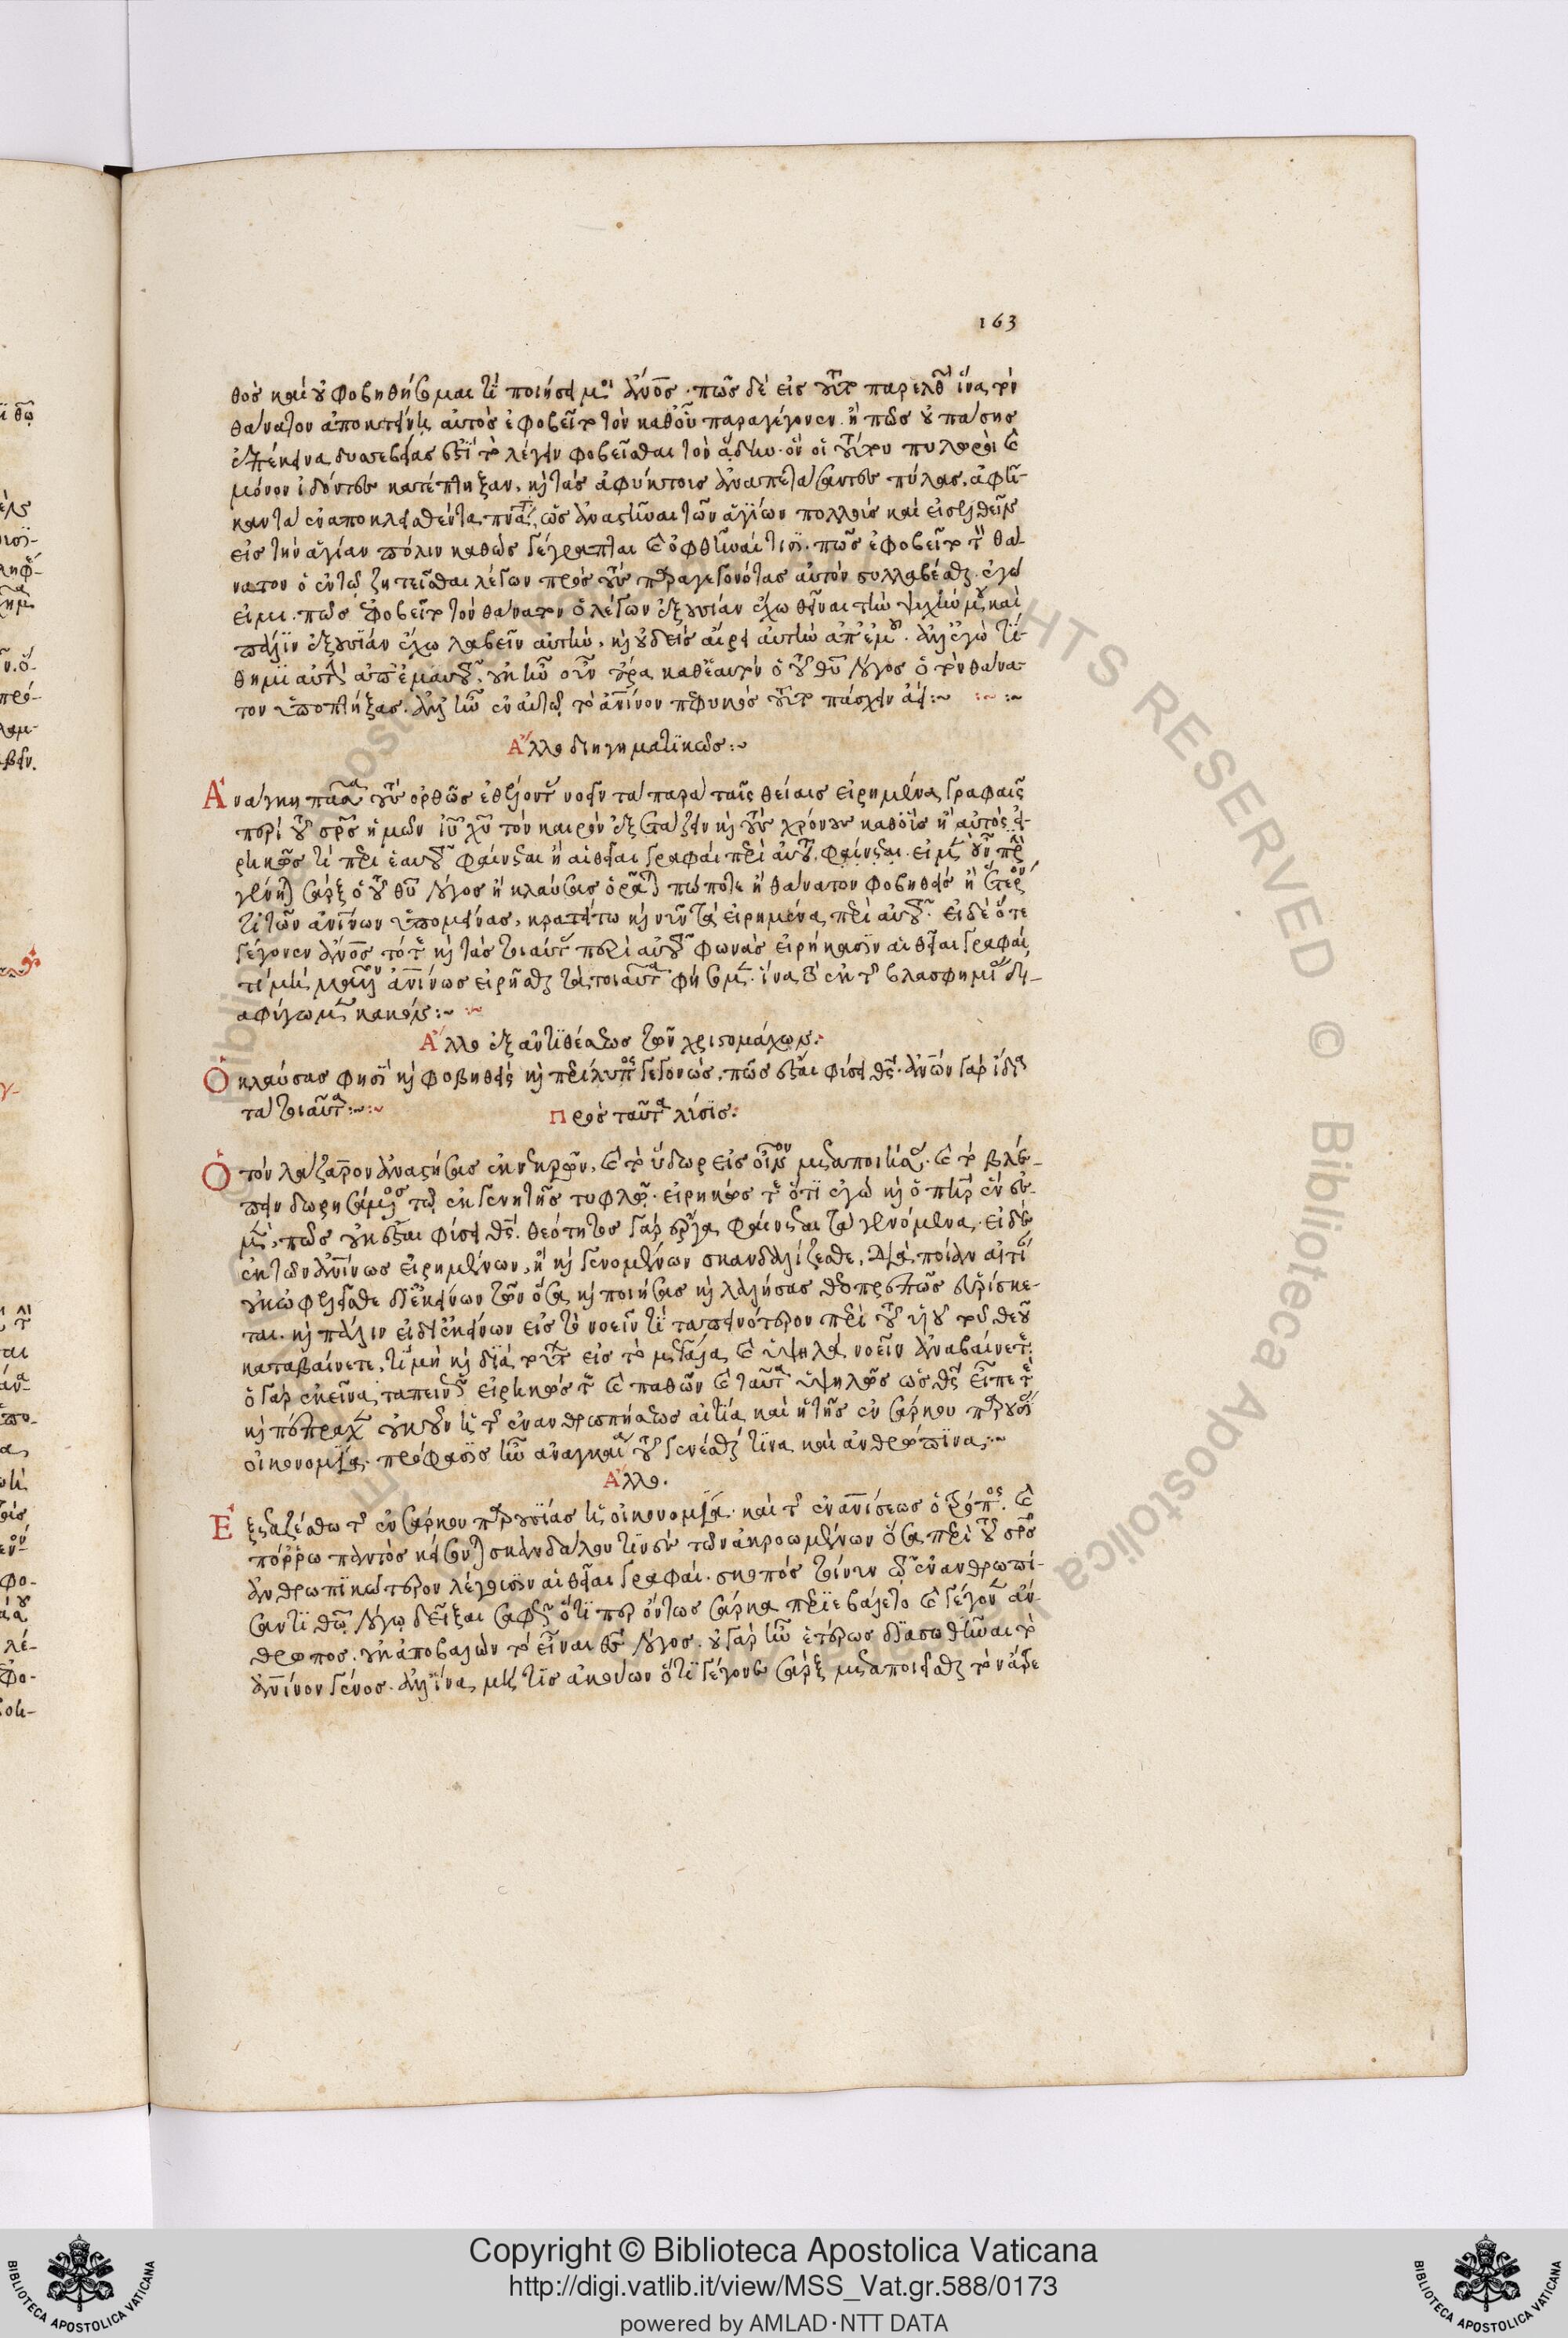 163
θὸς καὶ οὐ φοβηθήσομαι τί ποιήσει μοι ἄνος· πῶς δὲ εἰς τοῦτο παρελθὼν ἵνα τὸν
θάνατον ἀποκτείνῃ, αὐτὸς ἐφοβεῖτο τὸν καθ' οὗ παραγέγονεν. ἢ πῶς οὐ πάσης
ἐπέκεινα δυσσεβείας ἐστὶ τὸ λέγειν φοβεῖσθαι τὸν ἅδην· ὃν οἱ τούτου πυλωροὶ καὶ
μόνον ἰδόντες κατέπτηξαν, καὶ τὰς ἀφύκτοις ἀναπετάσαντες πύλας, ἀφῆ-
καν τὰ ἐναποκλεισθέντα πνᾶτα, ὡς ἀναστῆναι τῶν ἁγίων πολλοὺς καὶ εἰσελθεῖν
εἰς τὴν ἁγίαν πόλιν καθὼς γέγραπται καὶ ὀφθῆναί τισι. πῶς ἐφοβεῖτο τὸν θά-
νατον ὁ ἐν τῷ ζητεῖσθαι λέγων πρὸς τοὺς παραγεγονότας αὐτὸν συλλαβέσθαι· ἐγώ
εἰμι. πῶς ἐφοβεῖτο τὸν θάνατον ὁ λέγων ἐξουσίαν ἔχω θεῖναι τὴν ψυχήν μου καὶ
πάλιν ἐξουσίαν ἔχω λαβεῖν αὐτήν, καὶ οὐδεὶς αἴρει αὐτὴν ἀπ' ἐμοῦ. ἀλλ' ἐγὼ τί-
θημι αὐτὴν ἀπ' ἐμαυτοῦ, οὐκ ἦν οὖν ἄρα καθ' ἑαυτὸν ὁ τοῦ θυ λόγος ὁ τὸν θάνα-
τον ὑποπτήξας. ἀλλ' ἦν ἐν αὐτῷ τὸ ἀνινον πεφυκὸς τοῦτο πάσχειν ἀεί:~ :~ :~
Ἄλλο διηγηματικῶς:~
Ἀνάγκη πᾶσα τοὺς ὀρθῶς ἐθέλοντας νοεῖν τὰ παρὰ ταῖς θείαις εἰρημένα γραφαῖς
περὶ τοῦ σρς ἡμῶν ιυ χυ τὸν καιρὸν ἐξετάζειν καὶ τοὺς χρόνους καθ' οὓς ἢ αὐτὸς εἰ-
ρηκώς τι περὶ ἑαυτοῦ φαίνεται ἢ αἱ θεῖαι γραφαὶ περὶ αὐτοῦ φαίνεται. εἰ μὲν οὖν πρὶν
γένηται σὰρξ ὁ τοῦ θυ λόγος ἢ κλαύσας ὁρᾶται πώποτε ἢ θάνατον φοβηθεὶς ἢ ἕτερόν
τι τῶν ἀνίνων ὑπομείνας, κρατείτω καὶ νῦν τὰ εἰρημένα περὶ αὐτοῦ. εἰ δὲ ὅτε
γέγονεν ἄνος τότε καὶ τὰς τοιαύτας περὶ αὐτοῦ φωνὰς εἰρήκασιν αἱ θεῖαι γραφαί,
τί μὴ μᾶλλον ἀνίνως εἰρῆσθαι τὰ τοιαῦτα φήσομεν. ἵνα τὸ ἐκ τῆς βλασφημίας δι-
αφύγωμεν κακόν:~ :~
Ἄλλο ἐξ ἀντιθέσεως τῶν χριστομάχων:
Ὁ κλαύσας φησὶ καὶ φοβηθεὶς καὶ περίλυπος γεγονώς, πῶς ἔσται φύσει θς. ἀνων γὰρ ἴδια
τὰ τοιαῦτα:~:~
Πρὸς ταῦτα λύσις:
Ὁ τὸν λάζαρον ἀναστήσας ἐκ νεκρῶν, καὶ τὸ ὕδωρ εἰς οἶνον μεταποιήσας. καὶ τὸ βλέ-
πειν δωρησάμενος τῷ ἐκ γενητῆς τυφλῷ. εἰρηκώς τε ὅτι ἐγὼ καὶ ὁ πὴρ ἕν ἐσ-
μεν, πῶς οὐκ ἔσται φύσει θς. θεότητος γὰρ ἔργα φαίνεται τὰ γενόμενα. εἰ δὲ
ἐκ τῶν ἀνίνως εἰρημένων, ἢ καὶ γενομένων σκανδαλίζεσθε, διὰ ποίαν αἰτίαν
οὐκ ὠφελεῖσθε δι' ἐκείνων τῶν ὅσα καὶ ποιήσας καὶ λαλήσας θεοπρεπῶς εὑρίσκε-
ται. καὶ πάλιν εἰ δι' ἐκείνων εἰς τὸ νοεῖν τι ταπεινότερον περὶ τοῦ υἱοῦ τοῦ θεοῦ
καταβαίνετε, τί μὴ καὶ διὰ τούτων εἰς τὸ μεγάλα καὶ ὑψηλὰ νοεῖν ἀναβαίνετε.
ὁ γὰρ ἐκεῖνα ταπεινῶς εἰρηκώς τε καὶ παθὼν καὶ ταῦτα ὑψηλῶς ὡς θς εἶπέ τε
καὶ πέπραχεν οὐκοῦν ἡ τῆς ἐνανθρωπήσεως αἰτία καὶ ἡ τῆς ἐν σάρκου παρουσίας
οἰκονομία, πρόφασις ἦν ἀναγκαία τοῦ γενέσθαι τινὰ καὶ ἀνθρώπινα:~
Ἄλλο.
Ἐξεταζέσθω τῆς ἐνσάρκου παρουσίας ἡ οἰκονομία. καὶ τῆς ἐνανίσεως ὁ τρόπος. καὶ
πόρρω παντὸς κείσονται σκανδάλου τινὲς τῶν ἀκροωμένων ὅσα περὶ τοῦ σρς
ἀνθρωπικώτερον λέγουσιν αἱ θεῖαι γραφαί. σκοπὸς τοίνυν τῷ ἐνανθρωπή-
σαντι θῶ λόγῳ δεῖξαι σαφῶς ὅτι περ ὄντως σάρκα περιεβάλετο καὶ γέγονεν ἄν-
θρωπος. οὐκ ἀποβαλὼν τὸ εἶναι θς λόγος. οὐ γὰρ ἦν ἑτέρως διασωθῆναι τὸ
ἀνινον γένος. ἀλλ' ἵνα μή τις ἀκούων ὅτι γέγονε σὰρξ μεταποιεῖσθαι τὸν ἄρ
Copyright © Biblioteca Apostolica Vaticana
http://digi.vatlib.it/view/MSS_Vat.gr.588/0173
powered by AMLAD·NTT DATA